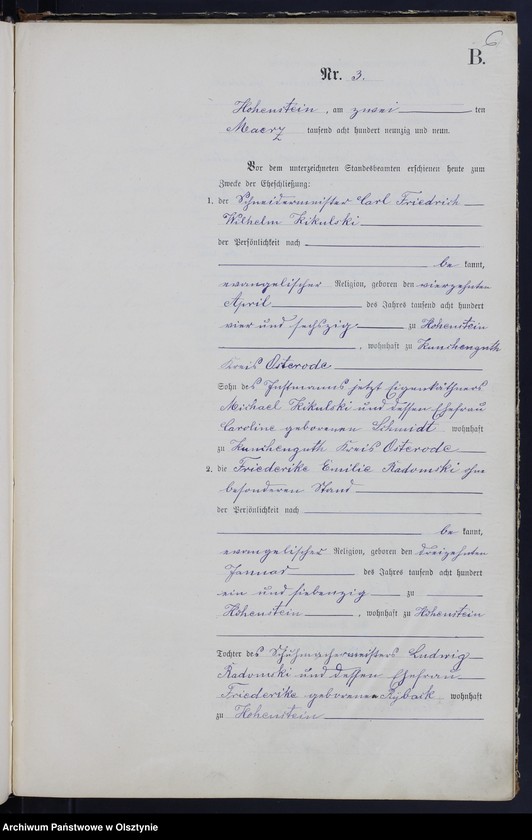 6
B.
Nr. 3.
Hohenstein, am zwei ten
Maerz tausend acht hundert neunzig und neun.
Vor dem unterzeichneten Standesbeamten erschienen heute zum
Zwecke der Eheschließung:
1. der Schneidermeister Carl Friedrich
Wilhelm Kikulski
der Persönlichkeit nach
be kannt,
evangelischer Religion, geboren den vierzehnten
April des Jahres tausend acht hundert
vier und sechszig zu Hohenstein
, wohnhaft zu Kunchenguth
Kreis Osterode
Sohn des Instmanns jetzt Eigenkäthners
Michael Kikulski und dessen Ehefrau
Caroline geborenen Schmidt wohnhaft
zu Kunchenguth Kreis Osterode
2. die Friederike Emilie Radomski ohne
besonderen Stand
der Persönlichkeit nach
be kannt,
evangelischer Religion, geboren den dreizehnten
Januar des Jahres tausend acht hundert
ein und siebenzig zu
Hohenstein, wohnhaft zu Hohenstein
Tochter des Schuhmachermeisters Ludwig
Radomski und dessen Ehefrau
Friederike geborenen Rÿback wohnhaft
zu Hohenstein
Archiwum Państwowe w Olsztynie